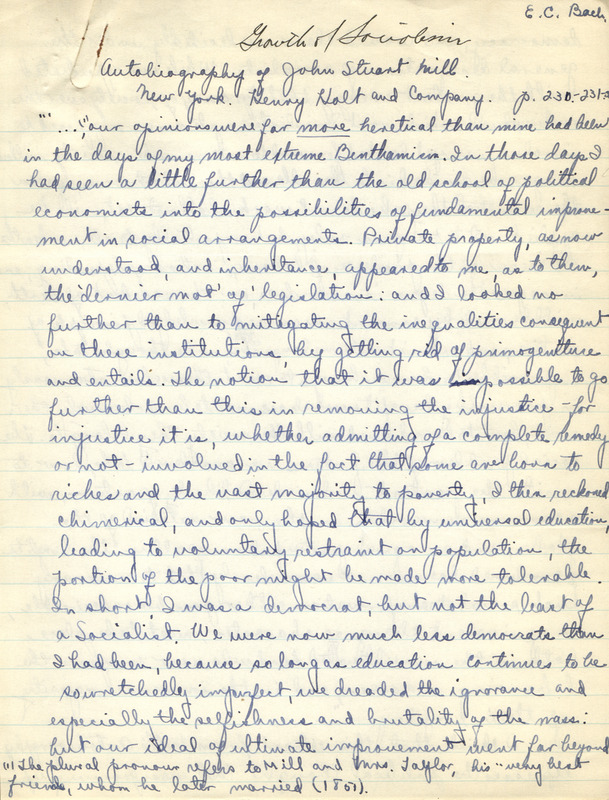 E. C. Bach
Growth of Socialism
Autobiography of John Stuart Mill.
New York. Henry Holt and Company. p. 230-231-2
"'...,"our opinions were far more heretical than mine had been
in the days of my most extreme Benthamism. In those days I
had seen a little further than the old school of political
economists into the possibilities of fundamental improve-
ment in social arrangements. Private property, as now
understood, and inheritance, appeared to me, as to them,
the 'dernier mot' of legislation: and I looked no
further than to mitigating the inequalities consequent
on these institutions, by getting rid of primogeniture
and entails. The notion that it was possible to go
further than this in removing the injustice - for
injustice it is, whether admitting of a complete remedy
or not - involved in the fact that some are born to
riches and the vast majority to poverty, I then reckoned
chimerical, and only hoped that by universal education,
leading to voluntary restraint on population, the
portion of the poor might be made more tolerable.
In short, I was a democrat, but not the least of
a Socialist. We were now much less democrats than
I had been, because so long as education continues to be
so wretchedly imperfect, we dreaded the ignorance and
especially the selfishness and brutality of the mass:
but our ideal of ultimate improvement went far beyond
(1) The plural pronoun refers to Mill and Mrs. Taylor, his "very best
friend, whom he later married (1851).